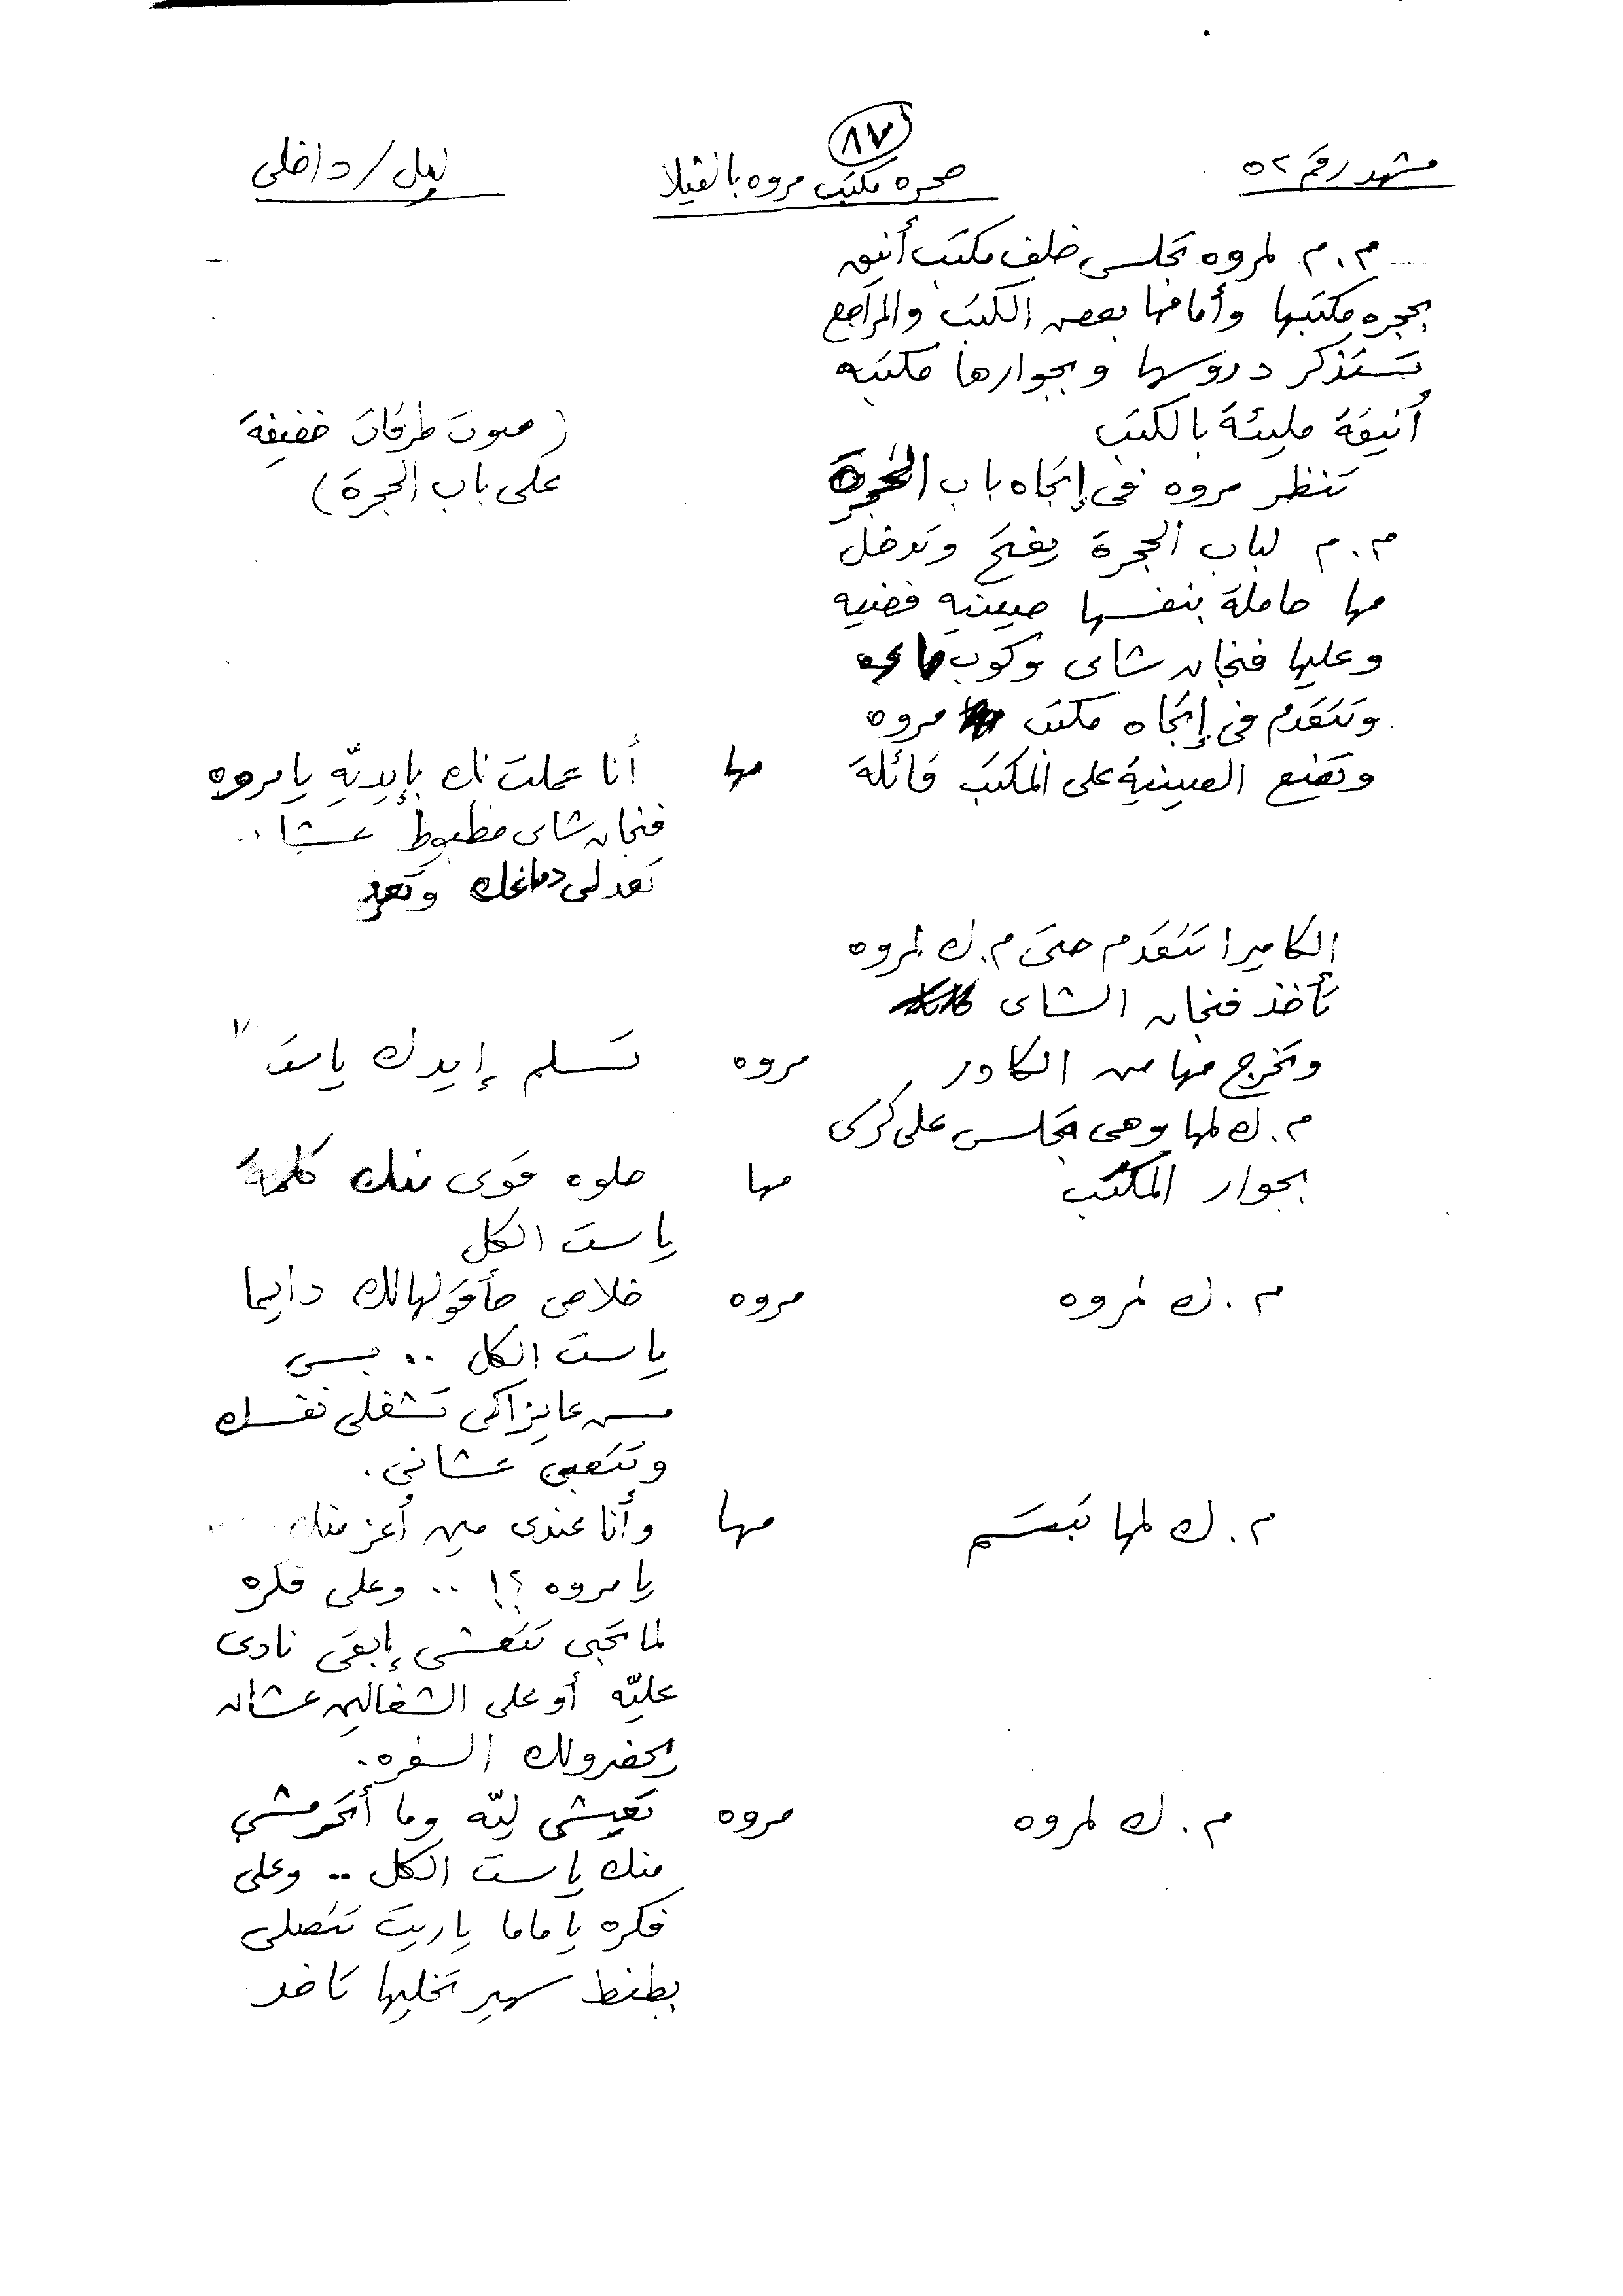 ٨٧
مشهد رقم ٥٢
حجره مكتب مروه بالفيلا
ليل / داخلى
م . م لمروه تجلس خلف مكتب أنيق
بحجره مكتبها وأمامها بعض الكتب والمراجع
تستذكر دروسها وبجوارها مكتبه
أنيقة مليئة بالكتب
(صوت طرقات خفيفة
على باب الحجرة)
تنظر مروه فى إتجاه باب الحجرة
م . م لباب الحجرة يفتح وتدخل
مها حاملة بنفسها صينيه فضيه
وعليها فنجان شاى وكوب ماء
وتتقدم فى إتجاه مكتب مروه
وتضع الصينية على المكتب قائلة
مها أنا عملت لك بإيديّه يا مروه
فنجان شاى مظبوط عشان
تعدلى دماغك
الكاميرا تتقدم حتى م . ك لمروه
تأخذ فنجان الشاى
وتخرج مها من الكادر
مروه تسلم إيدك يا ست
م . ك لمها وهى تجلس على كرسى
بجوار المكتب
مها حلوه قوى منك كلمة
يا ست الكل
م . ك لمروه
مروه خلاص حأقولهالك دايما
يا ست الكل .. بس
مش عايزاكى تشغلى نفسك
وتتعبى عشانى .
م . ك لمها تبتسم
مها وأنا عندى مين أعز منك
يا مروه ؟! .. وعلى فكره
لما تحبى تتعشى إبقى نادى
عليّه أو على الشغالين عشان
يحضرولك السفره .
م . ك لمروه
مروه تعيشى ليّه وما أتحرمشى
منك يا ست الكل .. وعلى
فكره يا ماما يا ريت تتصلى
بطنط سهير تخليها تاخد